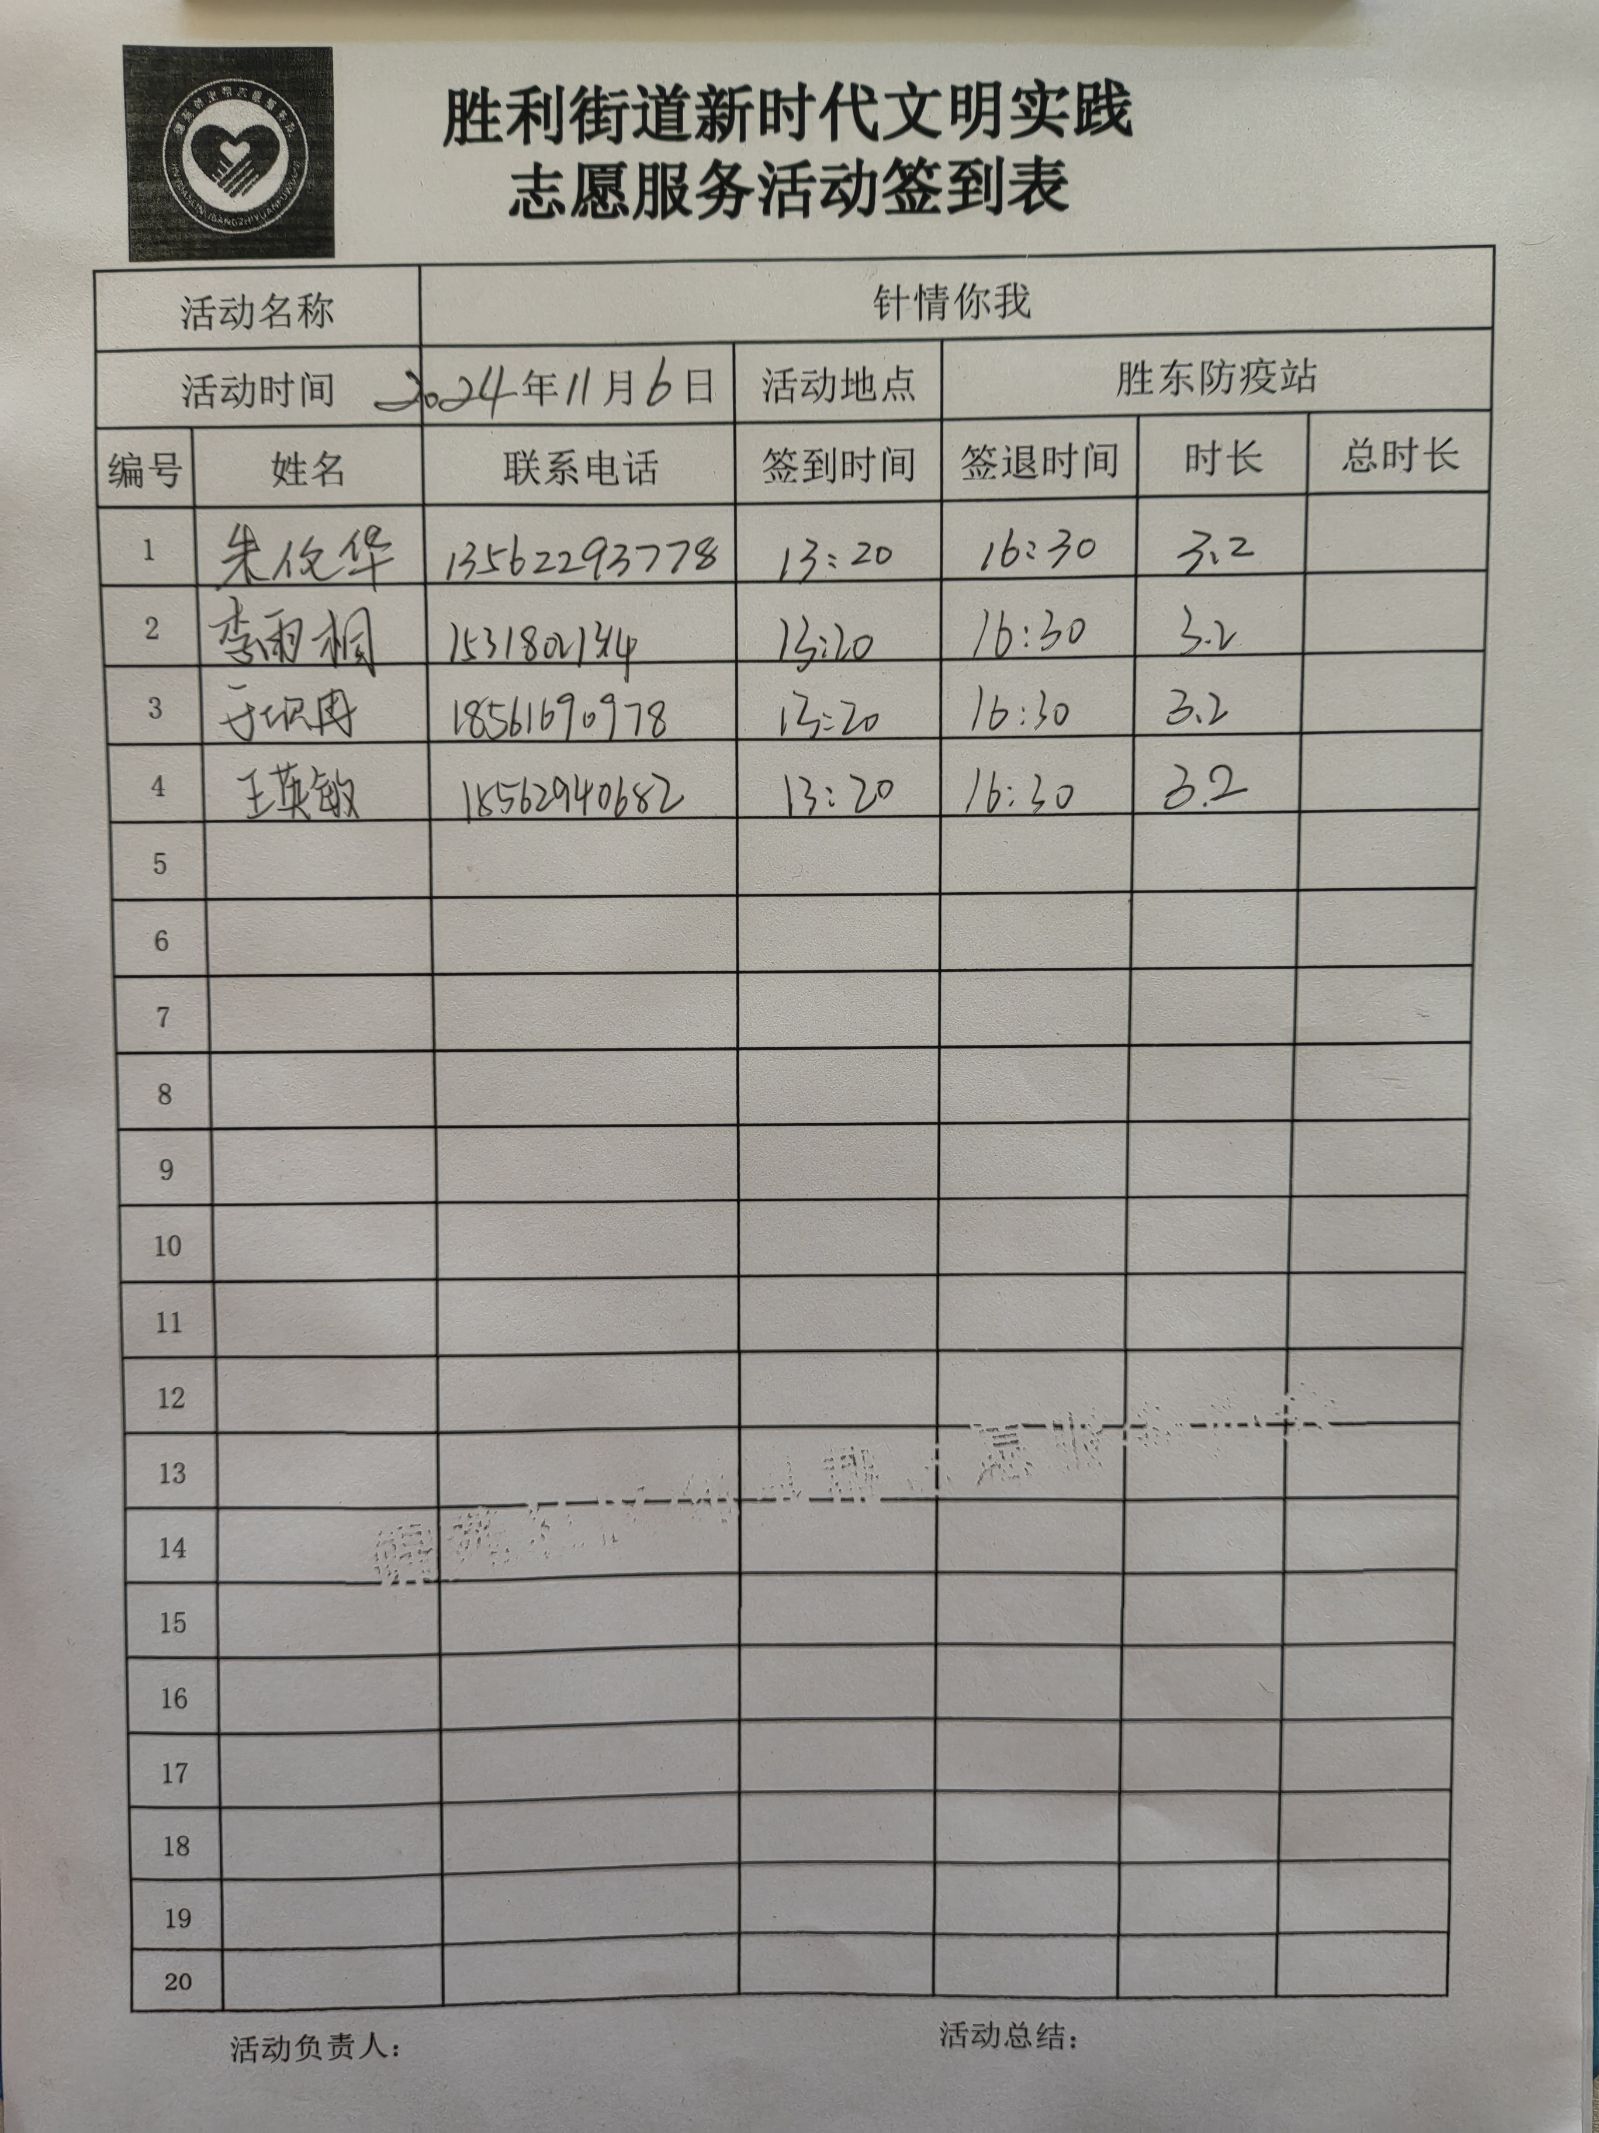 胜利街道新时代文明实践
志愿服务活动签到表
活动名称 针情你我
活动时间 2024年11月6日 活动地点 胜东防疫站
编号 姓名 联系电话 签到时间 签退时间 时长 总时长
1 朱俊华 13562293778 13:20 16:30 3.2
2 李雨桐 13:20 16:30 3.2
3 18561690978 13:20 16:30 3.2
4 王英敏 18562940682 13:20 16:30 3.2
5
6
7
8
9
10
11
12
13
14
15
16
17
18
19
20
活动负责人： 活动总结：